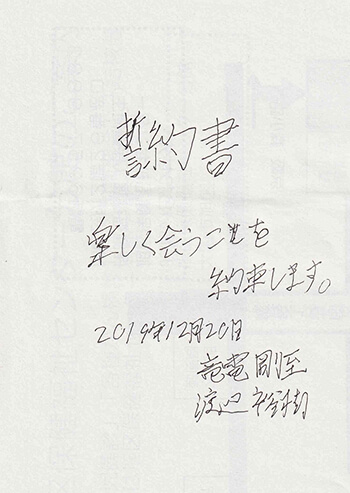 誓約書
楽しく会うことを
約束します。
2019年12月20日
竜電 剛至
渡辺